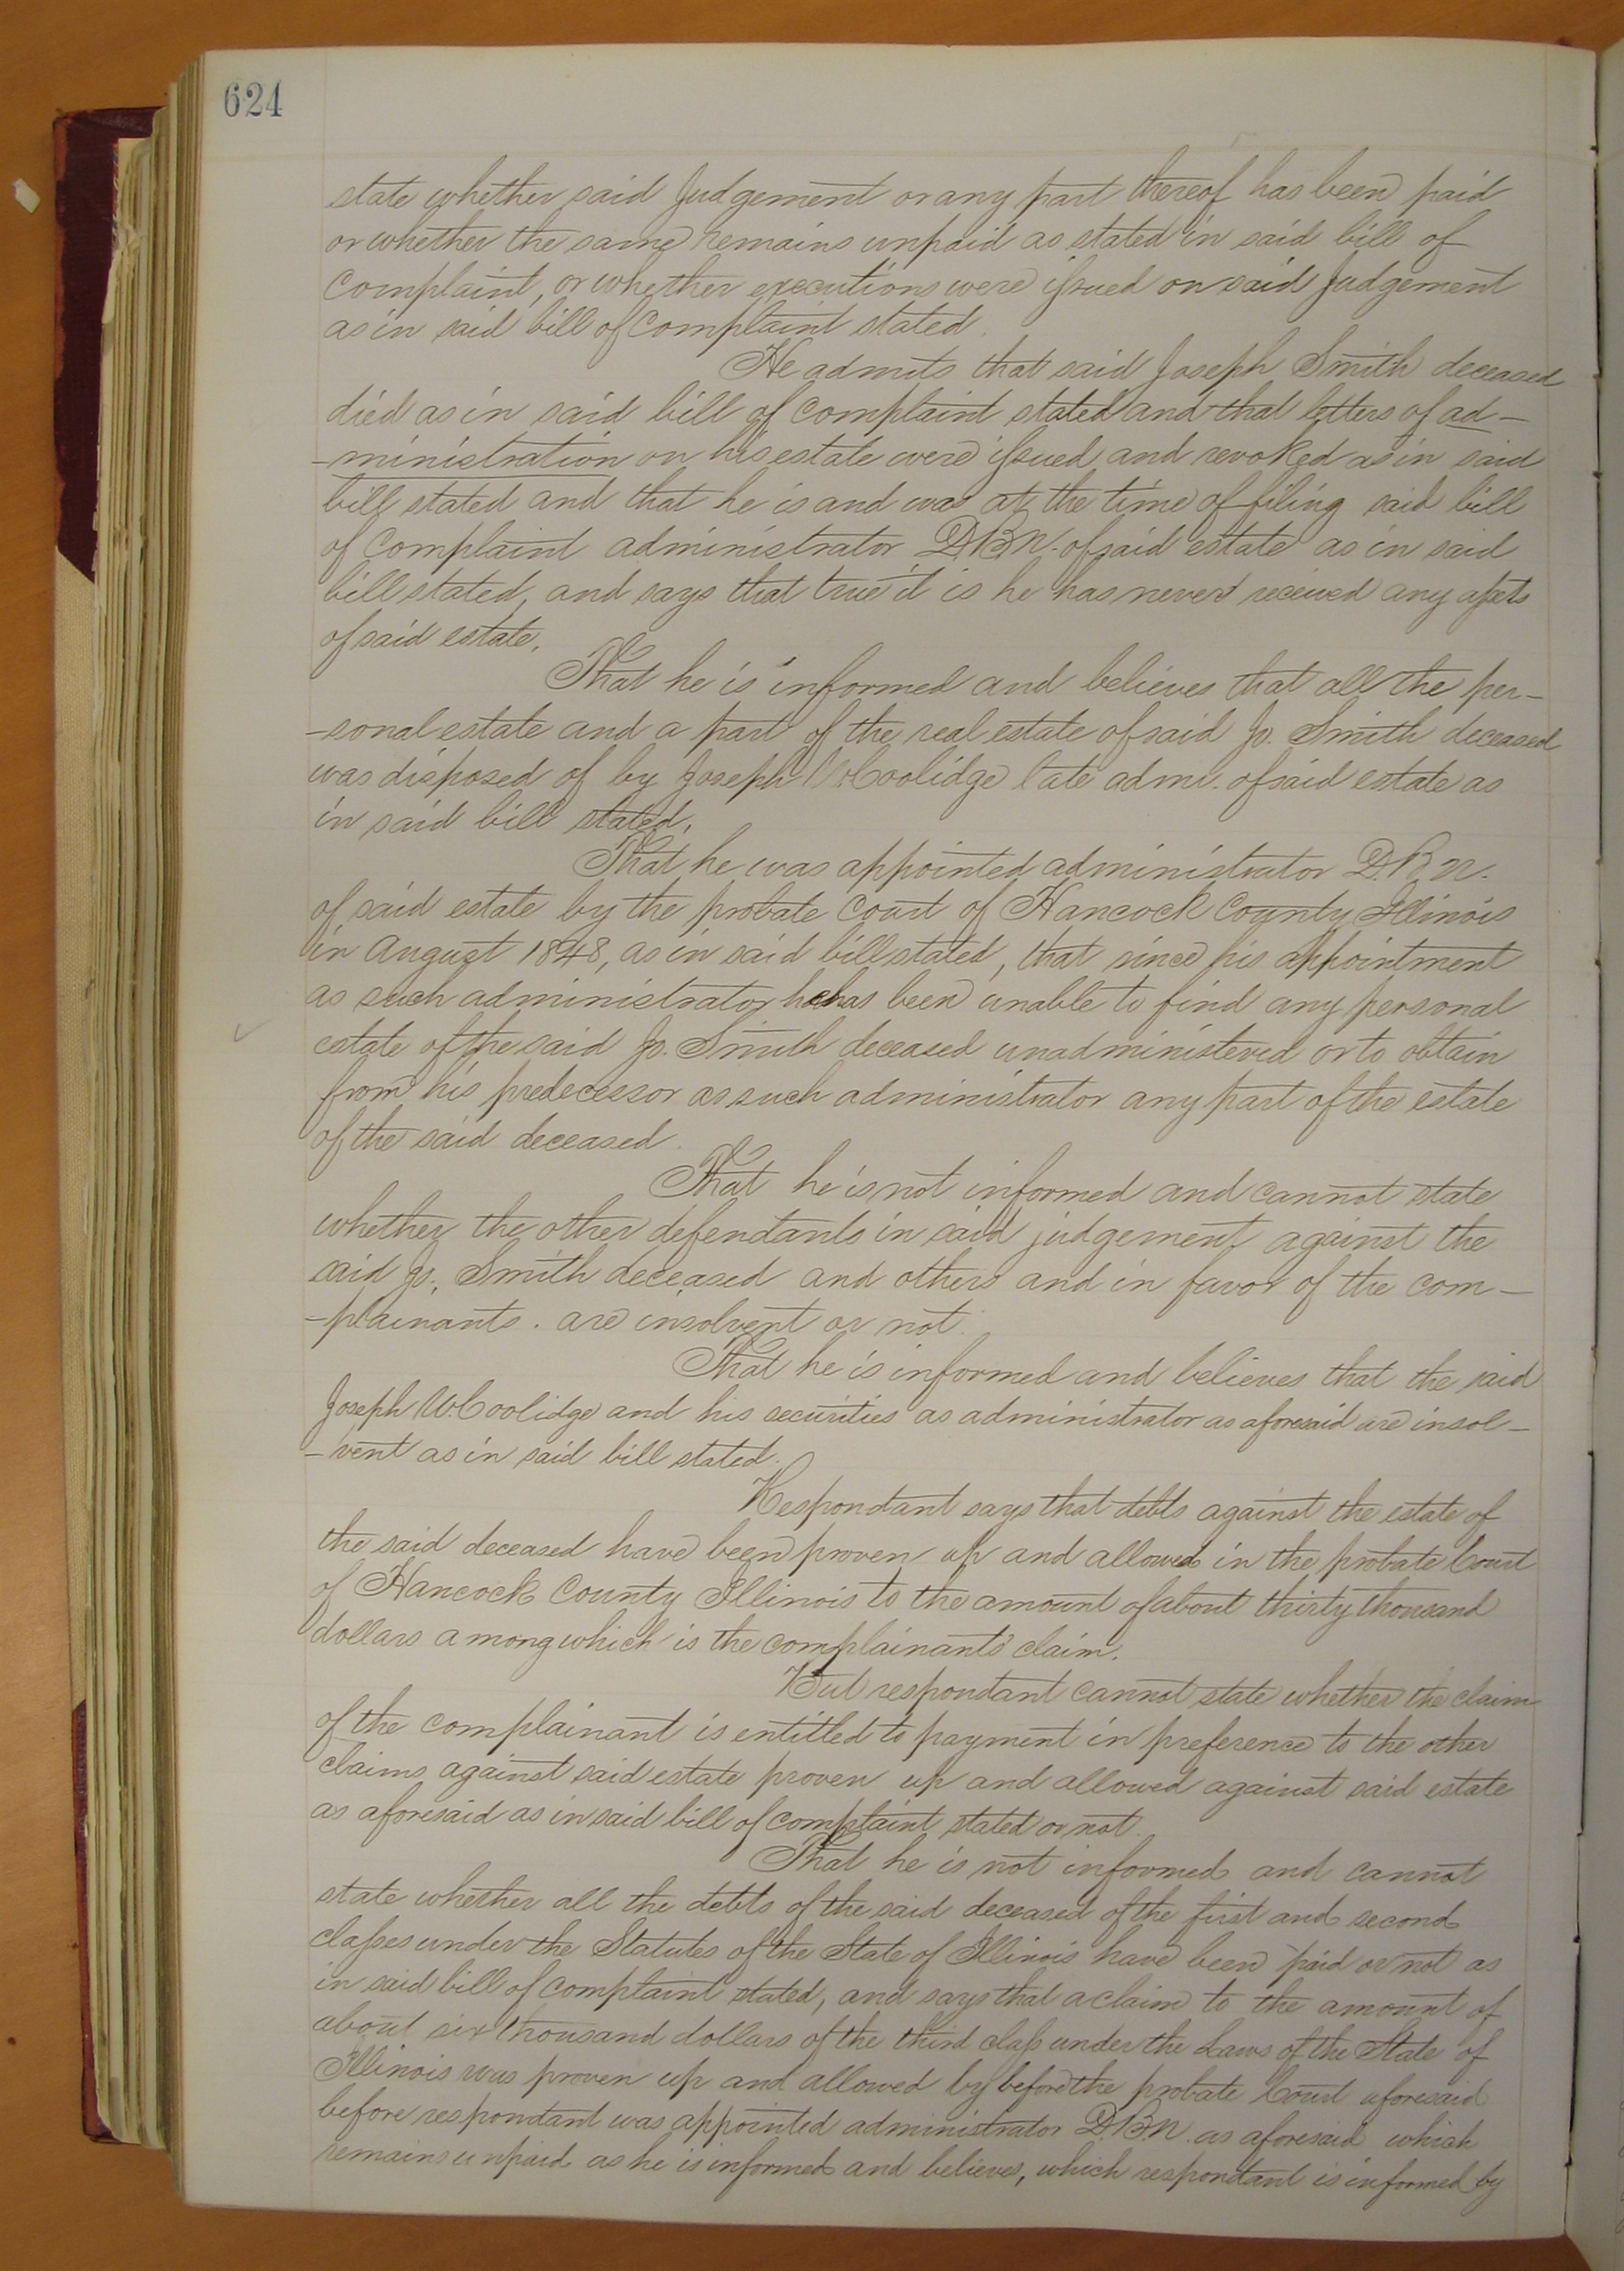 624
state whether said Judgement or any part thereof has been paid
or whether the same remains unpaid as stated in said bill of
Complaint, or whether executions were issued on said Judgement
as in said bill of Complaint stated.
He admits that said Joseph Smith deceased
died as in said bill of complaint stated and that letters of ad-
-ministration on his estate were issued and revoked as in said
bill stated and that he is and was at the time of filing said bill
of Complaint administrator D.B.N. of said estate as in said
bill stated, and says that true it is he has never received any assets
of said estate.
That he is informed and believes that all the per-
-sonal estate and a part of the real estate of said Jo. Smith deceased
was disposed of by Joseph W. Coolidge late admr. of said estate as
in said bill stated.
That he was appointed administrator D.B.N.
of said estate by the probate Court of Hancock County Illinois
in August 1848, as in said bill stated, that since his appointment
as such administrator he has been unable to find any personal
estate of the said Jo. Smith deceased unadministered or to obtain
from his predecessor as such administrator any part of the estate
of the said deceased.
That he is not informed and cannot state
whether the other defendants in said judgement against the
said Jo. Smith deceased and others and in favor of the com-
-plainants. are insolvent or not.
That he is informed and believes that the said
Joseph W. Coolidge and his securities as administrator as aforesaid are insol-
-vent as in said bill stated.
Respondant says that debts against the estate of
the said deceased have been proven up and allowed in the probate Court
of Hancock County Illinois to the amount of about thirty thousand
dollars among which is the complainants' claim.
But respondant cannot state whether the claim
of the complainant is entitled to payment in preference to the other
claims against said estate proven up and allowed against said estate
as aforesaid as in said bill of complaint stated or not.
That he is not informed and cannot
state whether all the debts of the said deceased of the first and second
classes under the Statutes of the State of Illinois have been paid or not as
in said bill of complaint stated, and says that a claim to the amount of
about six thousand dollars of the third class under the Laws of the State of
Illinois was proven up and allowed by before the probate Court aforesaid
before respondant was appointed administrator D.B.N. as aforesaid which
remains unpaid as he is informed and believes, which respondant is informed by